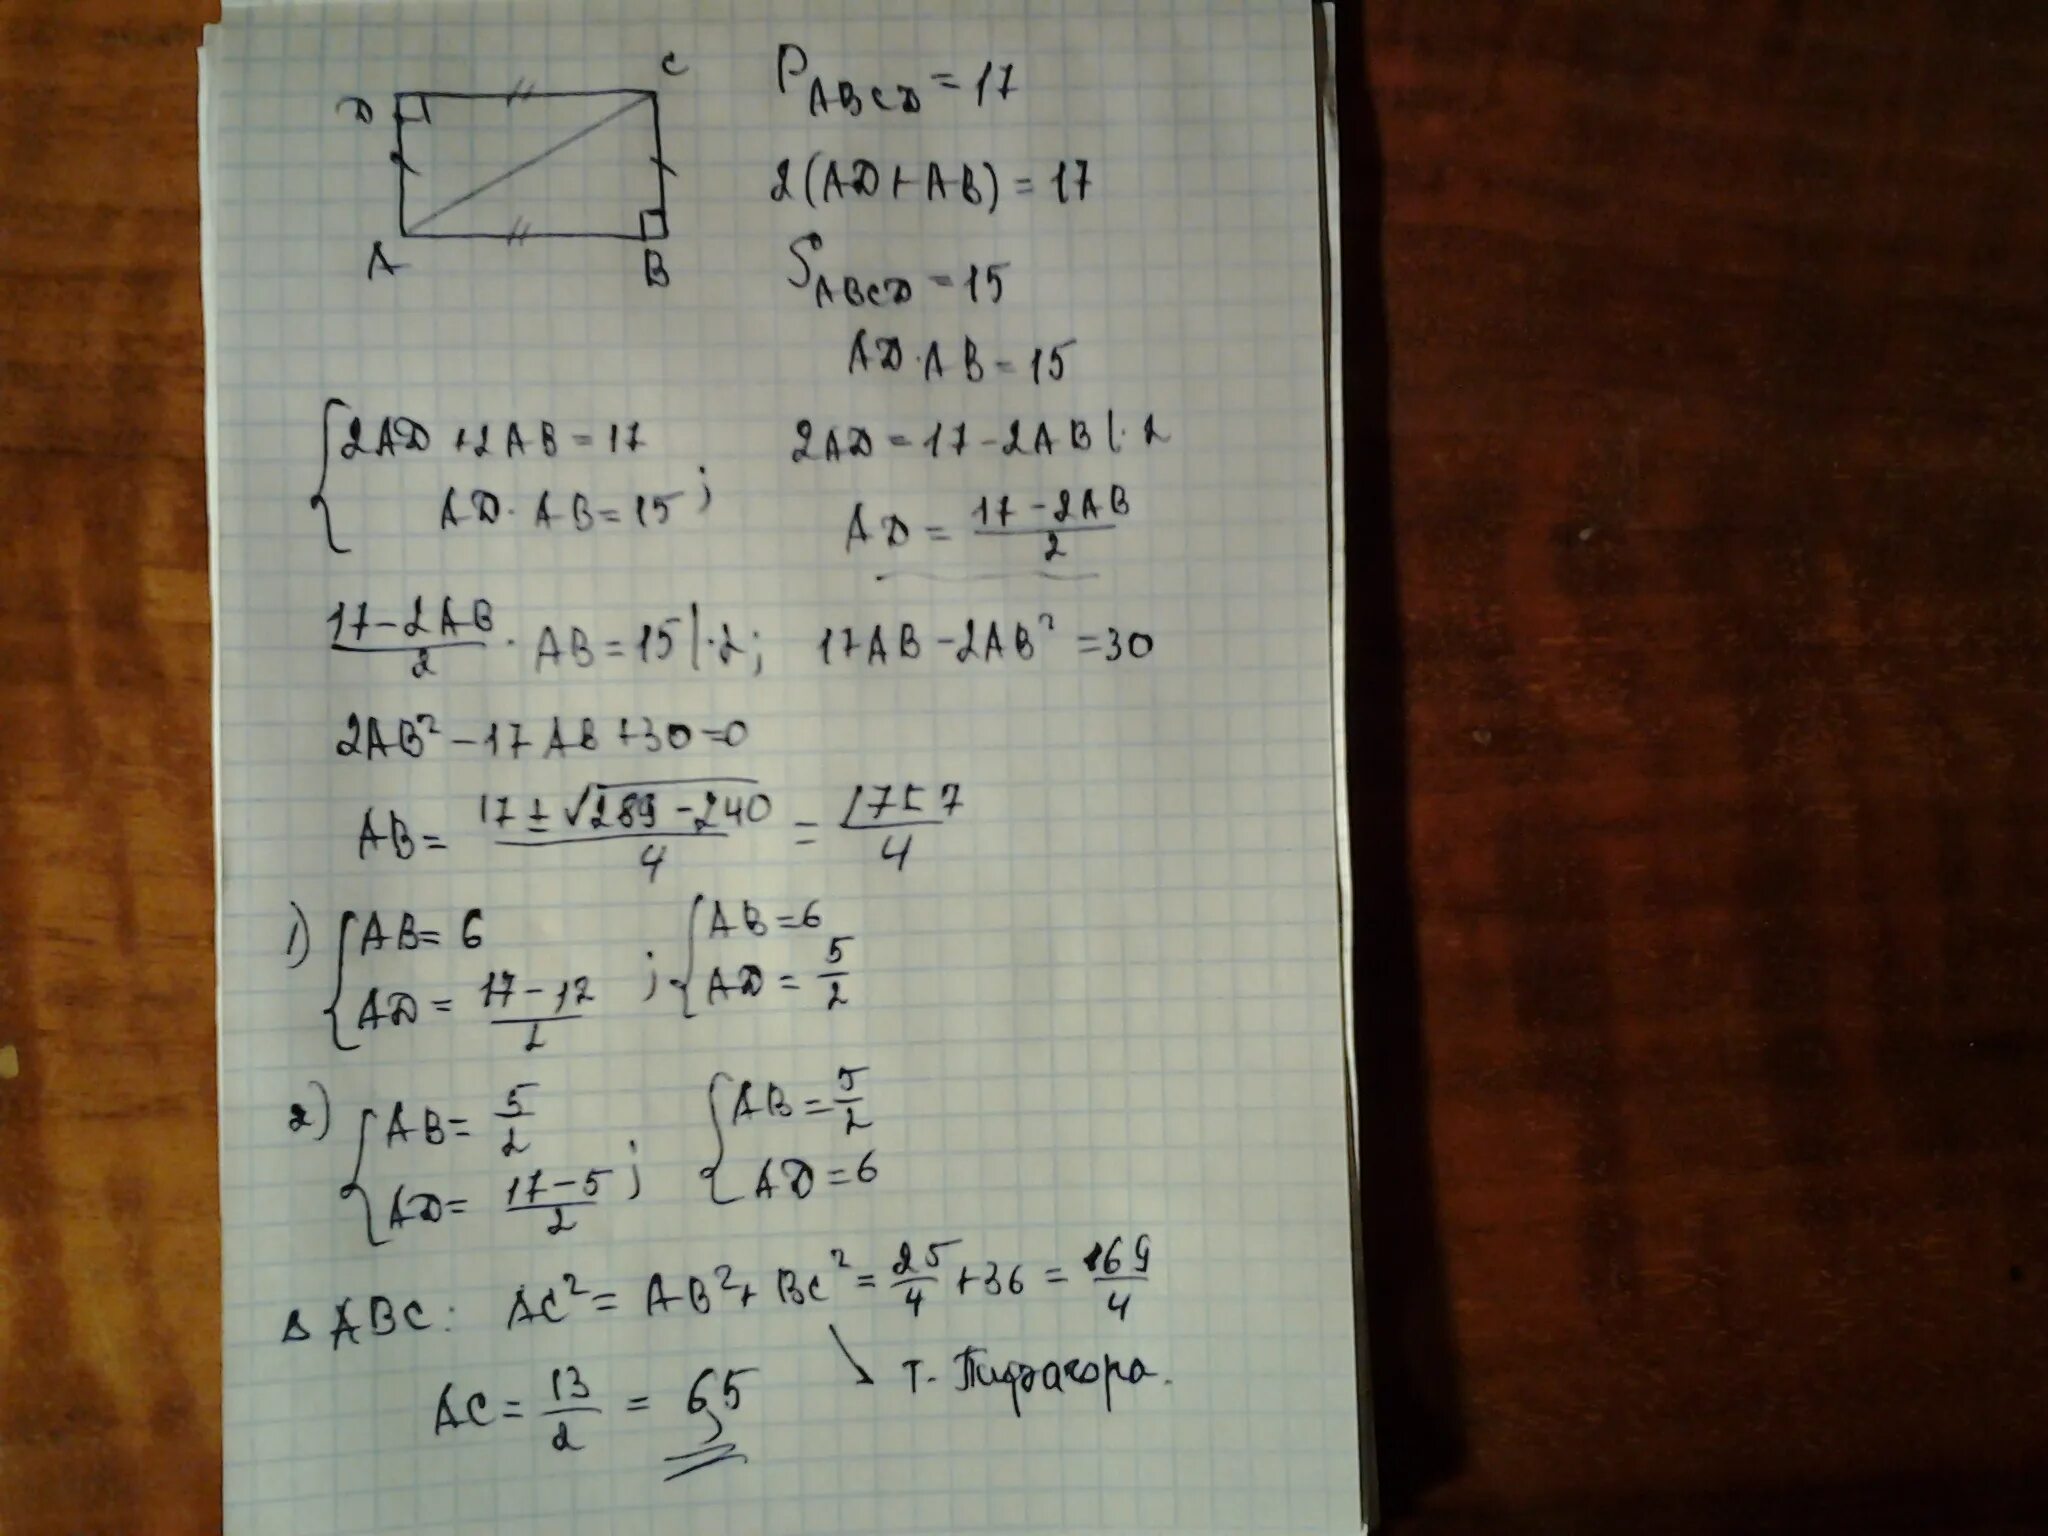 D C
A B
P_ABCD = 17
2(AD+AB) = 17
S_ABCD = 15
AD·AB = 15
{2AD + 2AB = 17
AD·AB = 15;
2AD = 17 - 2AB |·2
AD = (17 - 2AB)/2
(17 - 2AB)/2 · AB = 15 |·2; 17AB - 2AB² = 30
2AB² - 17AB + 30 = 0
AB = (17 ± √(289 - 240))/4 = (17 ± 7)/4
1) {AB = 6
AD = (17 - 12)/2 ; {AB = 6
AD = 5/2
2) {AB = 5/2
AD = (17 - 5)/2 ; {AB = 5/2
AD = 6
Δ ABC: AC² = AB² + BC² = 25/4 + 36 = 169/4
т. Пифагора.
AC = 13/2 = 6,5